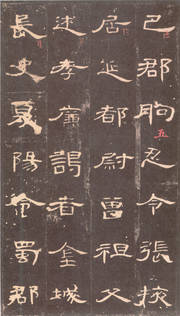 巴郡朐忍令張掖
五
居延都尉曾祖父
述孝廉謁者金城
長史夏陽令蜀郡